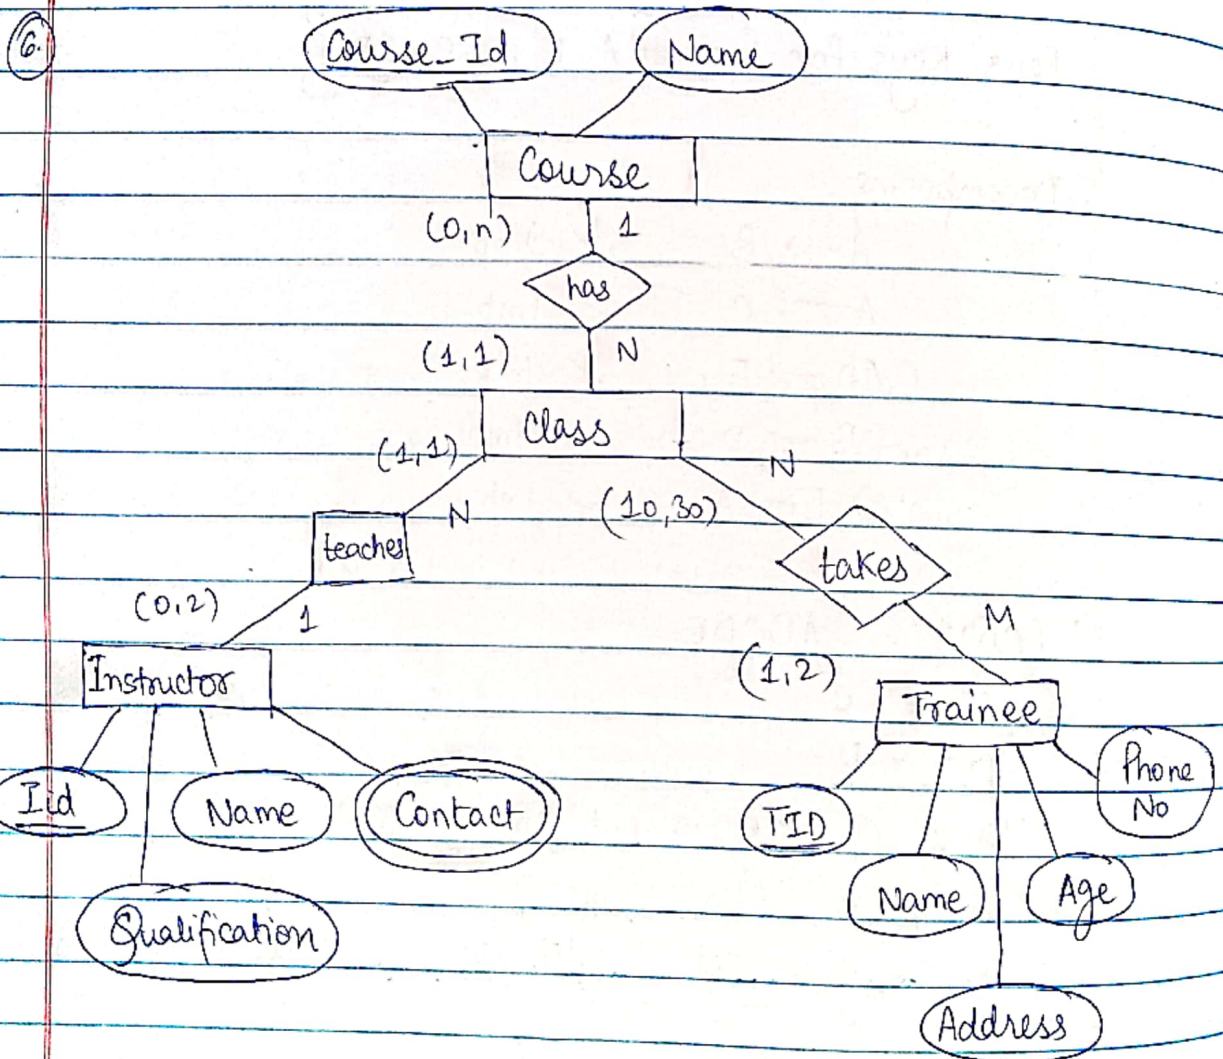 6.
Course_Id
Name
Course
(0,n) 1
has
(1,1) N
Class
(1,1) N
N (10,30)
teaches
takes
(0,2) 1
M
(1,2)
Instructor
Trainee
Iid
Name
Contact
Qualification
TID
Name
Address
Age
Phone
No